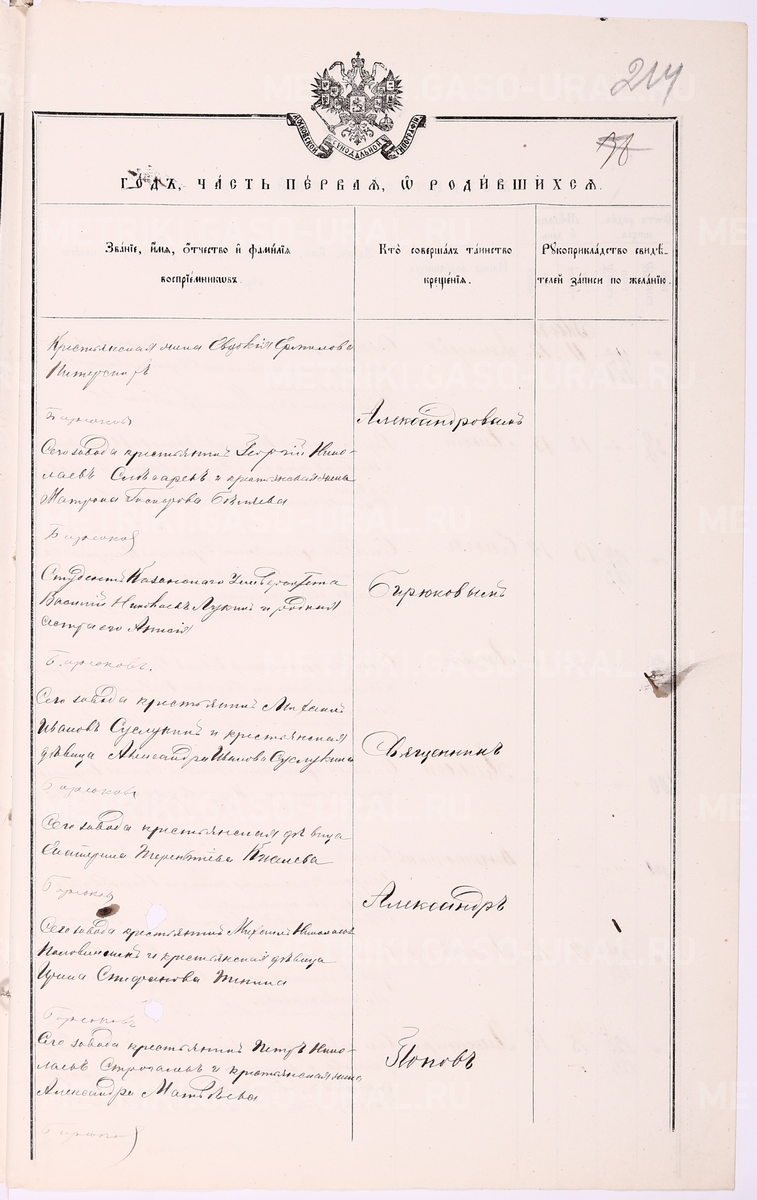 214
МОСКОВСКОЙ СѴНОДАЛЬНОЙ ТИПОГРАФІИ
ГОДЪ, ЧАСТЬ ПЕРВАЯ, Ѡ РОДИВШИХСЯ.
Званіе, имя, отчество и фамилія
воспріемниковъ.
Кто совершалъ таинство
крещенія.
Рукоприкладство свидѣ-
телей записи по желанію.
Крестьянская жена Евдокія
Бирюковъ
Александровымъ
Сего завода крестьянинъ Георгій Нико-
лаевъ и крестьянская жена
Матрона Бѣляева
Бирюковъ
Студентъ Казанскаго Университета
Василій Николаевъ Лукинъ и родная
сестра его
Бирюковымъ
Бирюковъ.
Сего завода крестьянинъ Михаилъ
Ивановъ Суслукинъ и крестьянская
дѣвица Александра Иванова Суслукина
Священникъ
Бирюковъ
Сего завода крестьянская дѣвица
Екатерина Терентьева
Бирюковъ
Александръ
Сего завода крестьянинъ Михаилъ Николаевъ
и крестьянская дѣвица
Ирина Стефанова
Бирюковъ
Сего завода крестьянинъ Петръ Нико-
лаевъ и крестьянская жена
Александра Матвѣева
Поповъ
Бирюковъ
METRIKI.GASO-URAL.RU